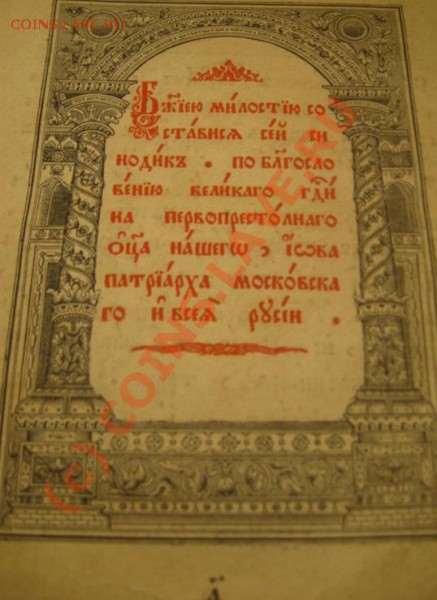 COINS.LAVE.RU
Бж҃їею ми́лостїю со
ста́виса се́й си
ноди́къ . по бл҃госло
ве́нїю вели́каго гд҇и
на первопресто́лнаго
ѻ҆ц҃а на́шегѡ , і҆́ѡва
патрїа́рха моско́вска
го и҆ всеѧ̀ рꙋсі́и .
(c) COINS.LAVE.RU